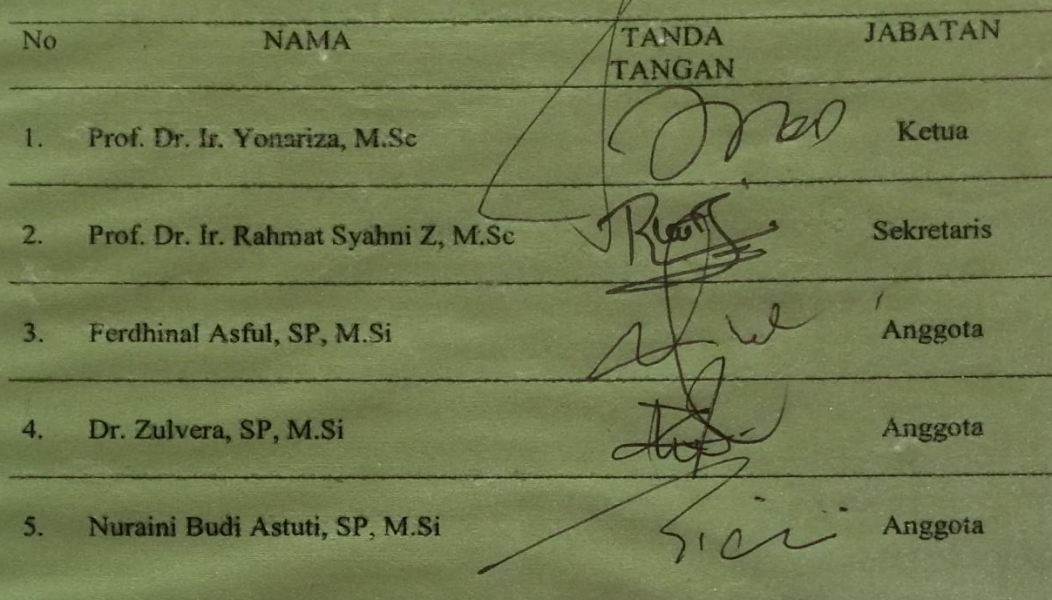 No NAMA TANDA TANGAN JABATAN
1. Prof. Dr. Ir. Yonariza, M.Sc Ketua
2. Prof. Dr. Ir. Rahmat Syahni Z, M.Sc Sekretaris
3. Ferdhinal Asful, SP, M.Si Anggota
4. Dr. Zulvera, SP, M.Si Anggota
5. Nuraini Budi Astuti, SP, M.Si Anggota